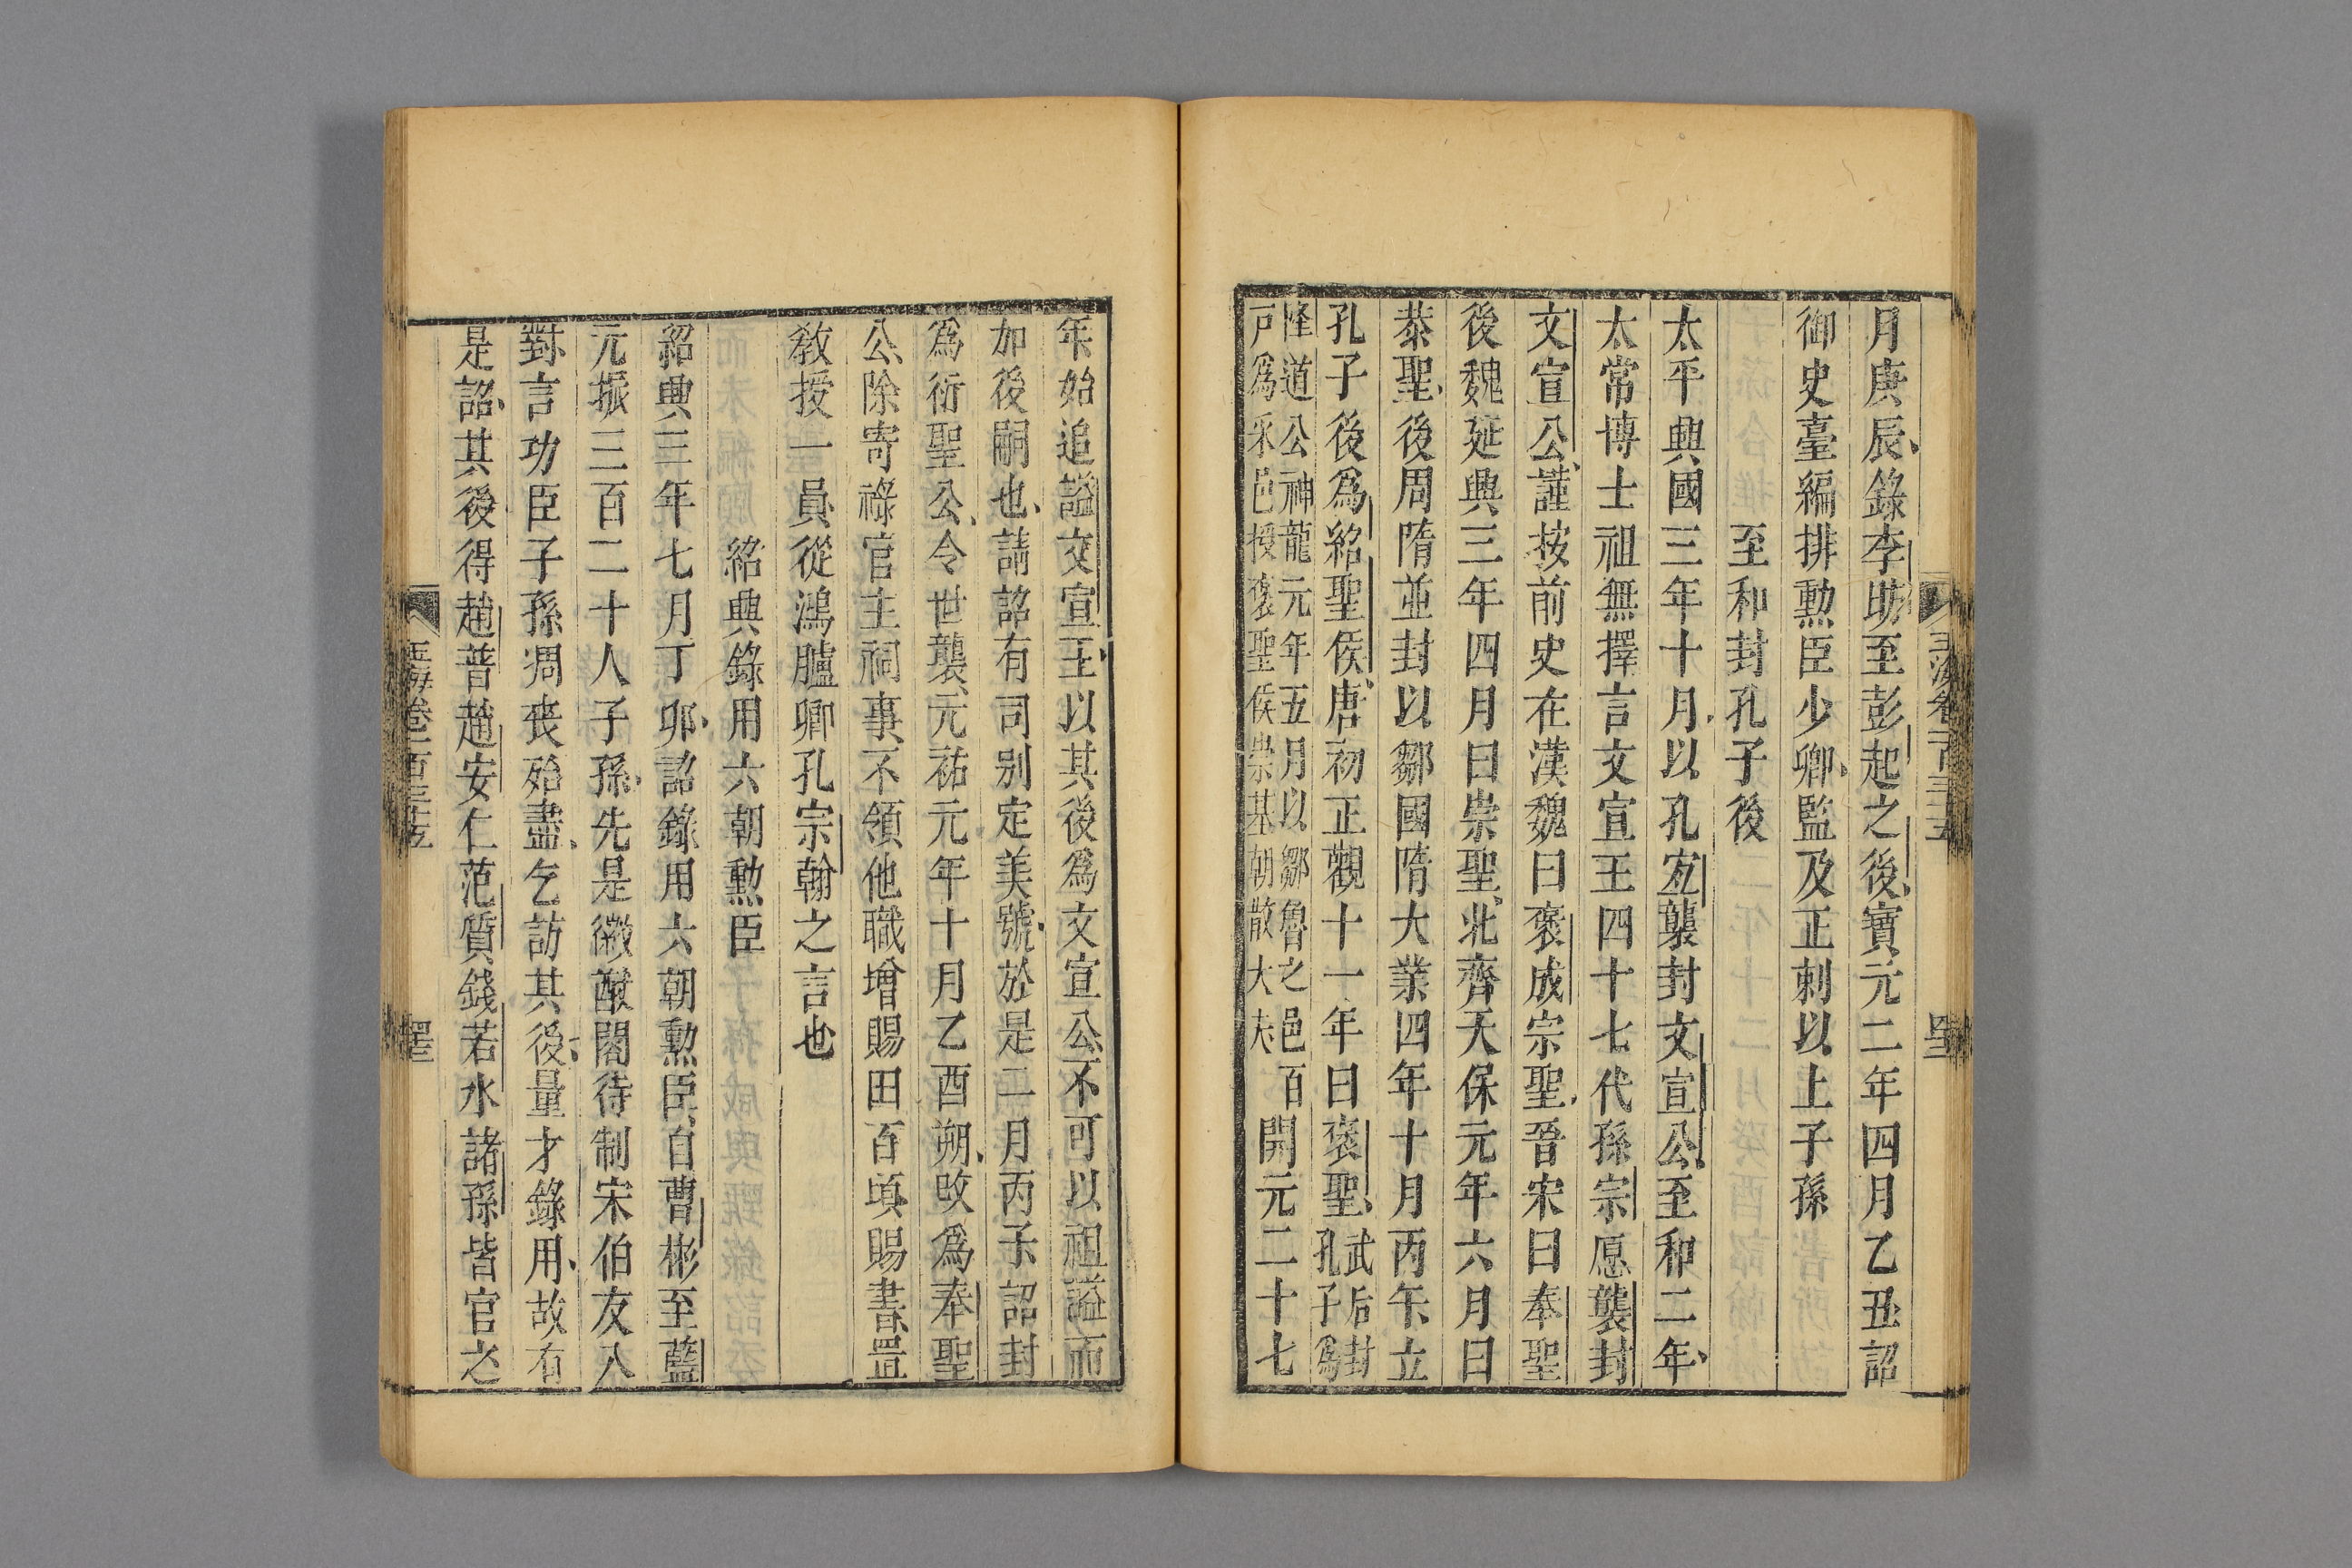 月庚辰錄李昉至彭起之後寶元二年四月乙丑詔
御史臺編排勲臣少卿監及正刺以上子孫
至和封孔子後
太平興國三年十月以孔宐襲封文宣公至和二年
太常博士祖無擇言文宣王四十七代孫宗愿襲封
文宣公謹按前史在漢魏曰褒成宗聖晉宋曰奉聖
後魏延興三年四月曰崇聖北齊天保元年六月曰
恭聖後周隋並封以鄒國隋大業四年十月丙午立
孔子後爲紹聖侯唐初正觀十一年曰褒聖武后封孔子爲
隆道公神龍元年五月以鄒魯之邑百戸爲采邑授褒聖侯崇基朝散大夫開元二十七
年始追謚文宣王以其後爲文宣公不可以祖謚而
加後嗣也請詔有司别定美號於是二月丙子詔封
爲衍聖公令世襲元祐元年十月乙酉朔改爲奉聖
公除寄祿官主祠事不領他職增賜田百頃賜書置
教授一員從鴻臚卿孔宗翰之言也
紹興錄用六朝勲臣
紹興三年七月丁卯詔錄用六朝勲臣自曹彬至藍
元振三百二十人子孫先是徽猷閣待制宋伯友入
對言功臣子孫凋喪殆盡乞訪其後量才錄用故有
是詔其後得趙普趙安仁范質錢若水諸孫皆官之
玉海卷一百三十五